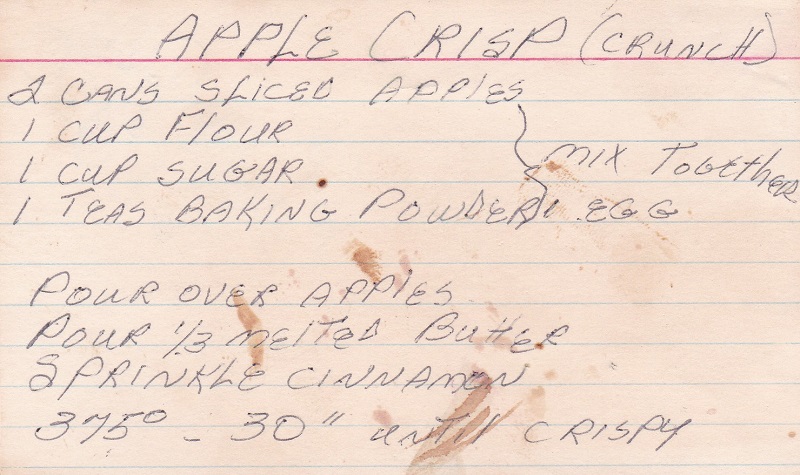 APPLE CRISP (CRUNCH)
2 CANS SLICED APPlES
1 CUP FlOUR
1 CUP SUGAR
MIX TOGEthER
1 TEAS BAKING POWDER 1 EGG
POUR OVER APPlES
POUR 1/3 MElTED BUttER
SPRINKLE CINNAMON
375° - 30" UNTIl CRISPY